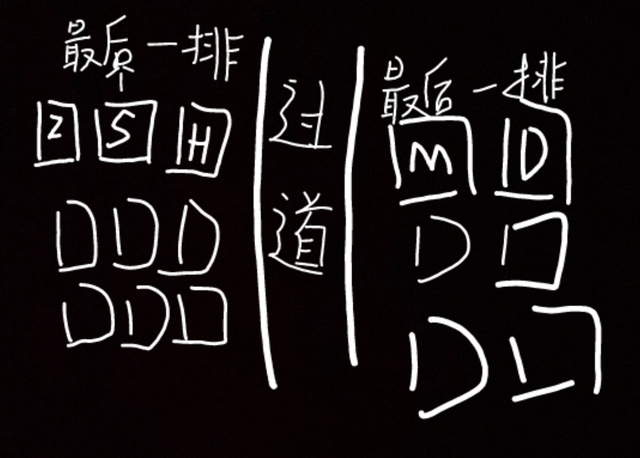 最后一排
Z S H
过道
最后一排
M D